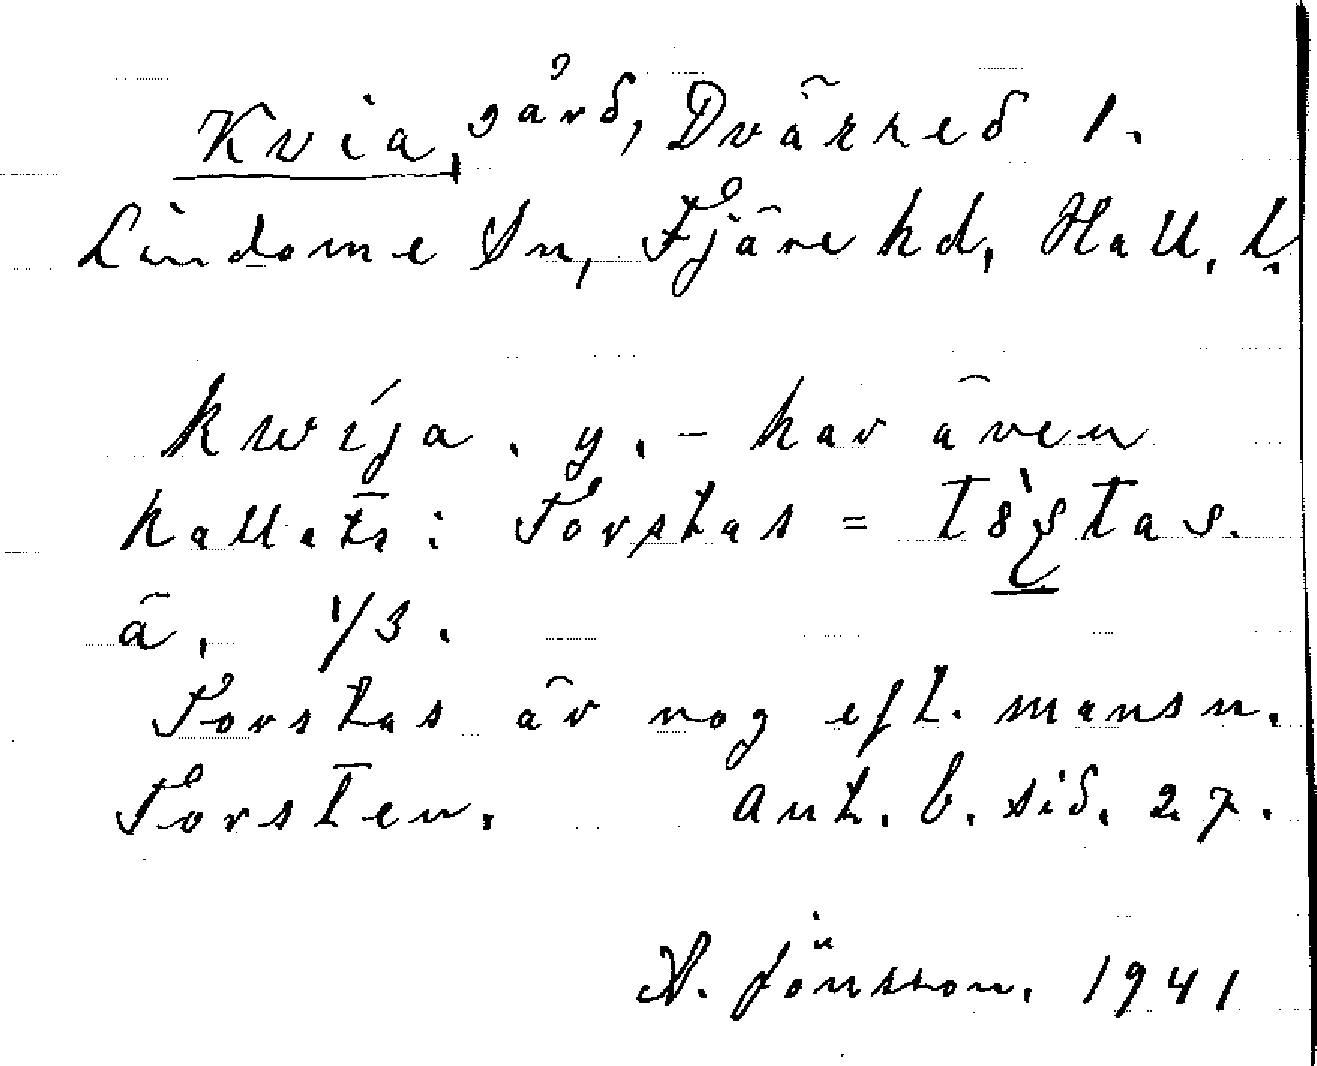 Kvia, gård, Dvärred 1.
Lindome Sn, Fjäre hd, Hall. l.
kwija. y. - har även
kallats: Torstas =
ä. 1/3.
Torstas är nog eft. mansn.
Torsten. Ant. b. sid. 27.
A. Jönsson. 1941